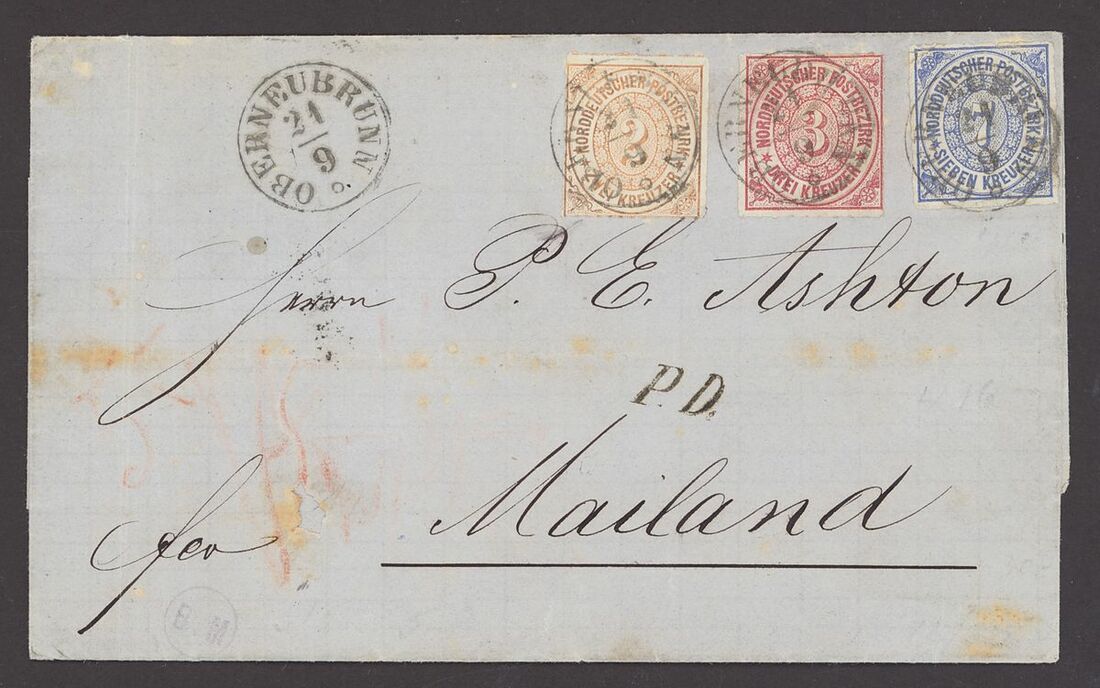 OBERNEUBRUNN
21/9
NORDDEUTSCHER POSTBEZIRK
2
KREUZER
NORDDEUTSCHER POSTBEZIRK
3
DREI KREUZER
NORDDEUTSCHER POSTBEZIRK
7
SIEBEN KREUZER
21
9
Herrn P. E. Ashton
P.D.
fco Mailand